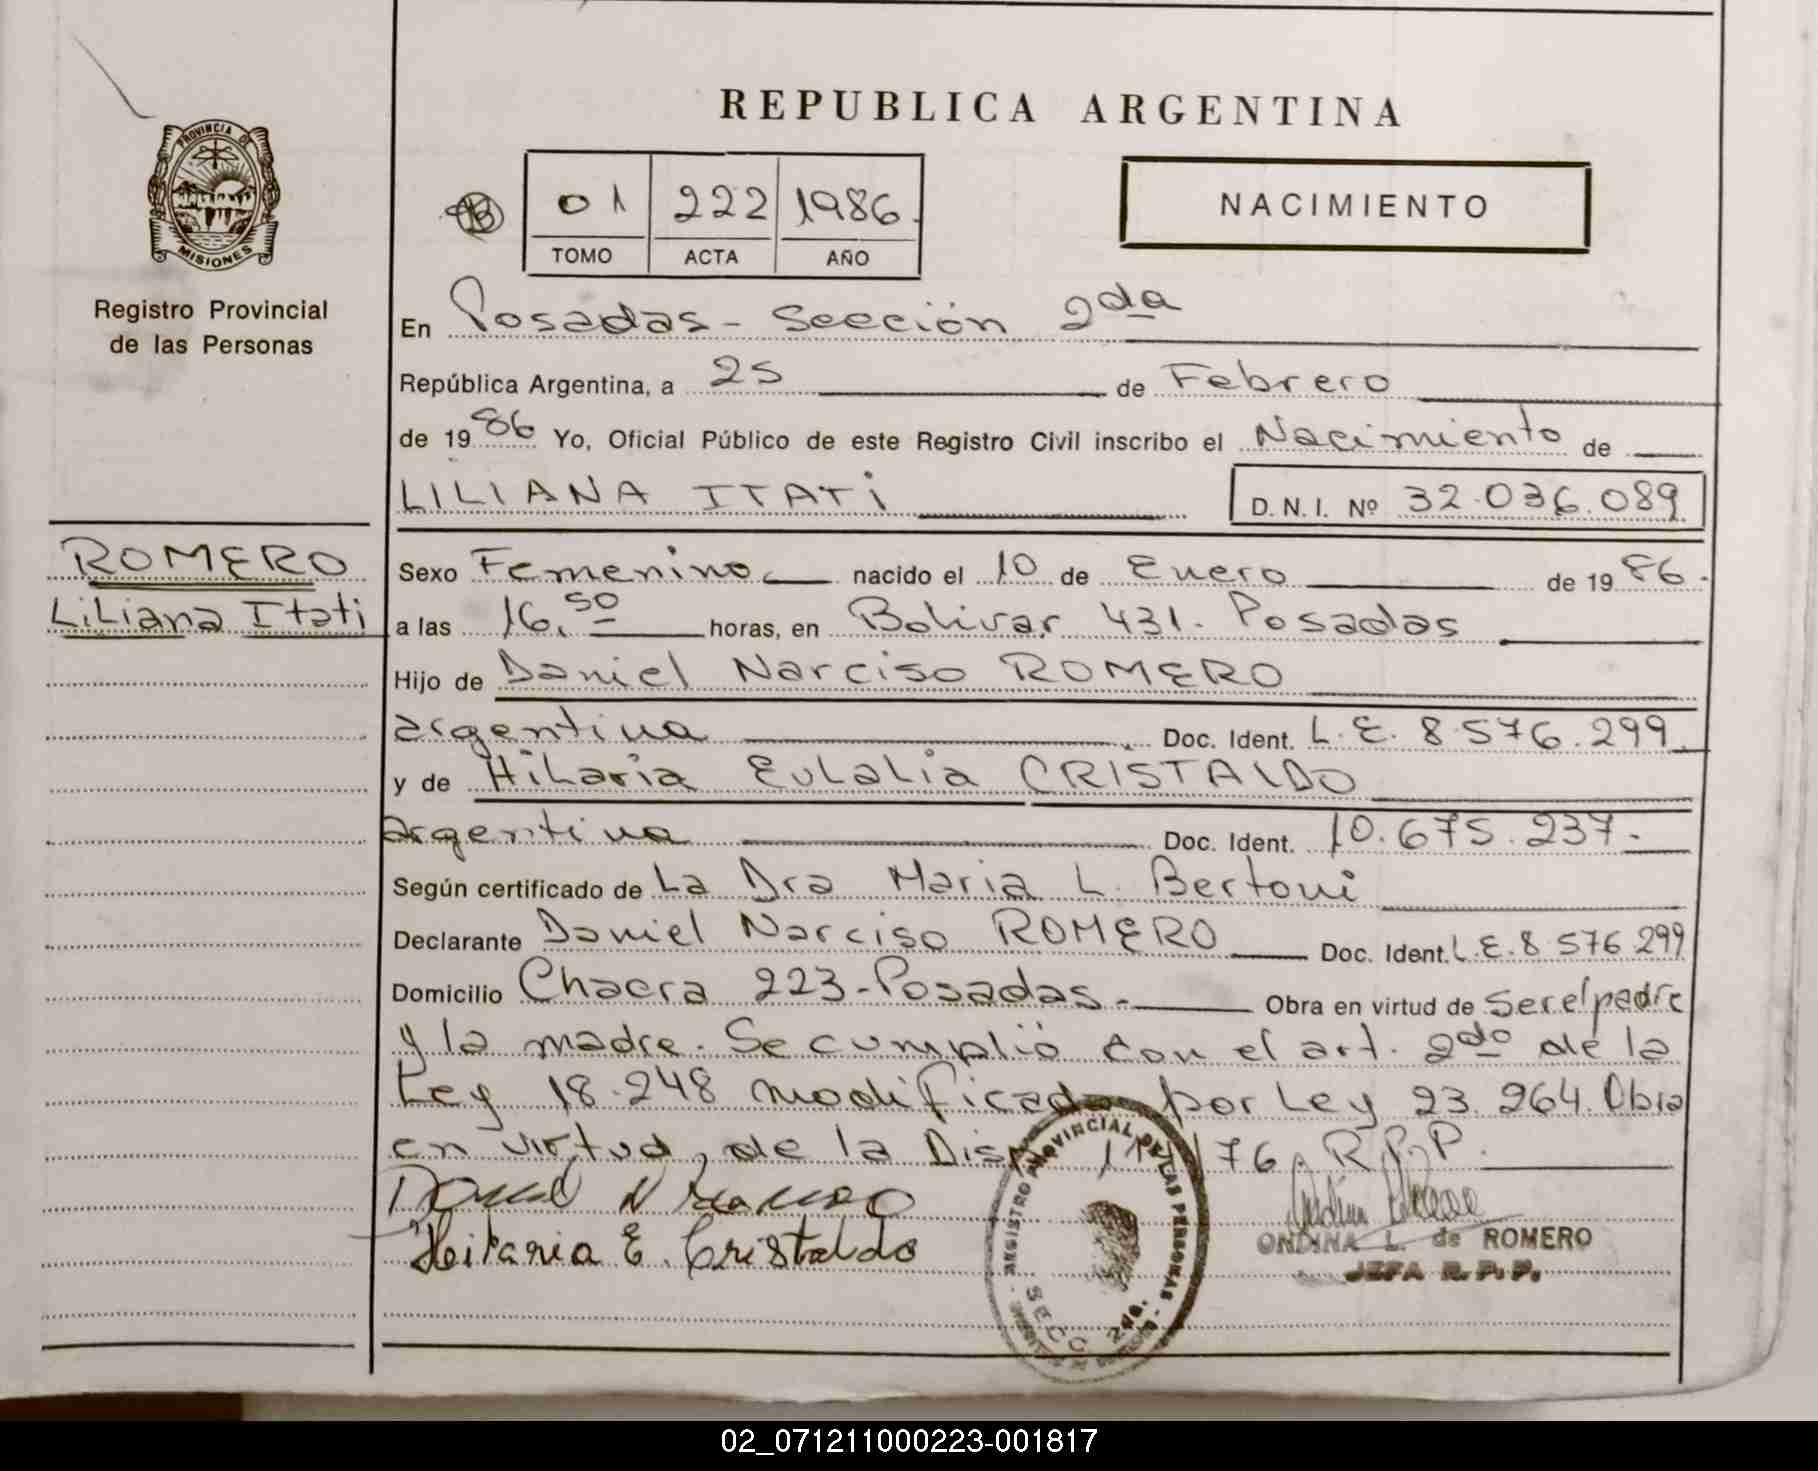 REPUBLICA ARGENTINA
PROVINCIA DE
MISIONES
Registro Provincial
de las Personas
01 222 1986.
TOMO ACTA AÑO
NACIMIENTO
En Posadas - Sección 2da
República Argentina, a 25 de Febrero
de 1986 Yo, Oficial Público de este Registro Civil inscribo el Nacimiento de
LILIANA ITATI D.N.I. Nº 32.036.089
ROMERO
Liliana Itati
Sexo Femenino nacido el 10 de Enero de 1986.
a las 16,50 horas, en Bolivar 431. Posadas
Hijo de Daniel Narciso ROMERO
argentina Doc. Ident. L.E. 8.576.299
y de Hilaria Eulalia CRISTALDO
argentina Doc. Ident. 10.675.237.
Según certificado de La Dra Maria L. Bertoni
Declarante Daniel Narciso ROMERO Doc. Ident. L.E. 8.576.299
Domicilio Chacra 223-Posadas. Obra en virtud de ser el padre
y la madre. Se cumplió con el art. 2do de la
Ley 18.248 modificada por Ley 23.264. Obra
en virtud, de la Disp. 76. R.P.P.
Hilaria E. Cristaldo
REGISTRO PROVINCIAL DE LAS PERSONAS
SECC 2da.
ONDINA L. de ROMERO
JEFA R.P.P.
02_071211000223-001817